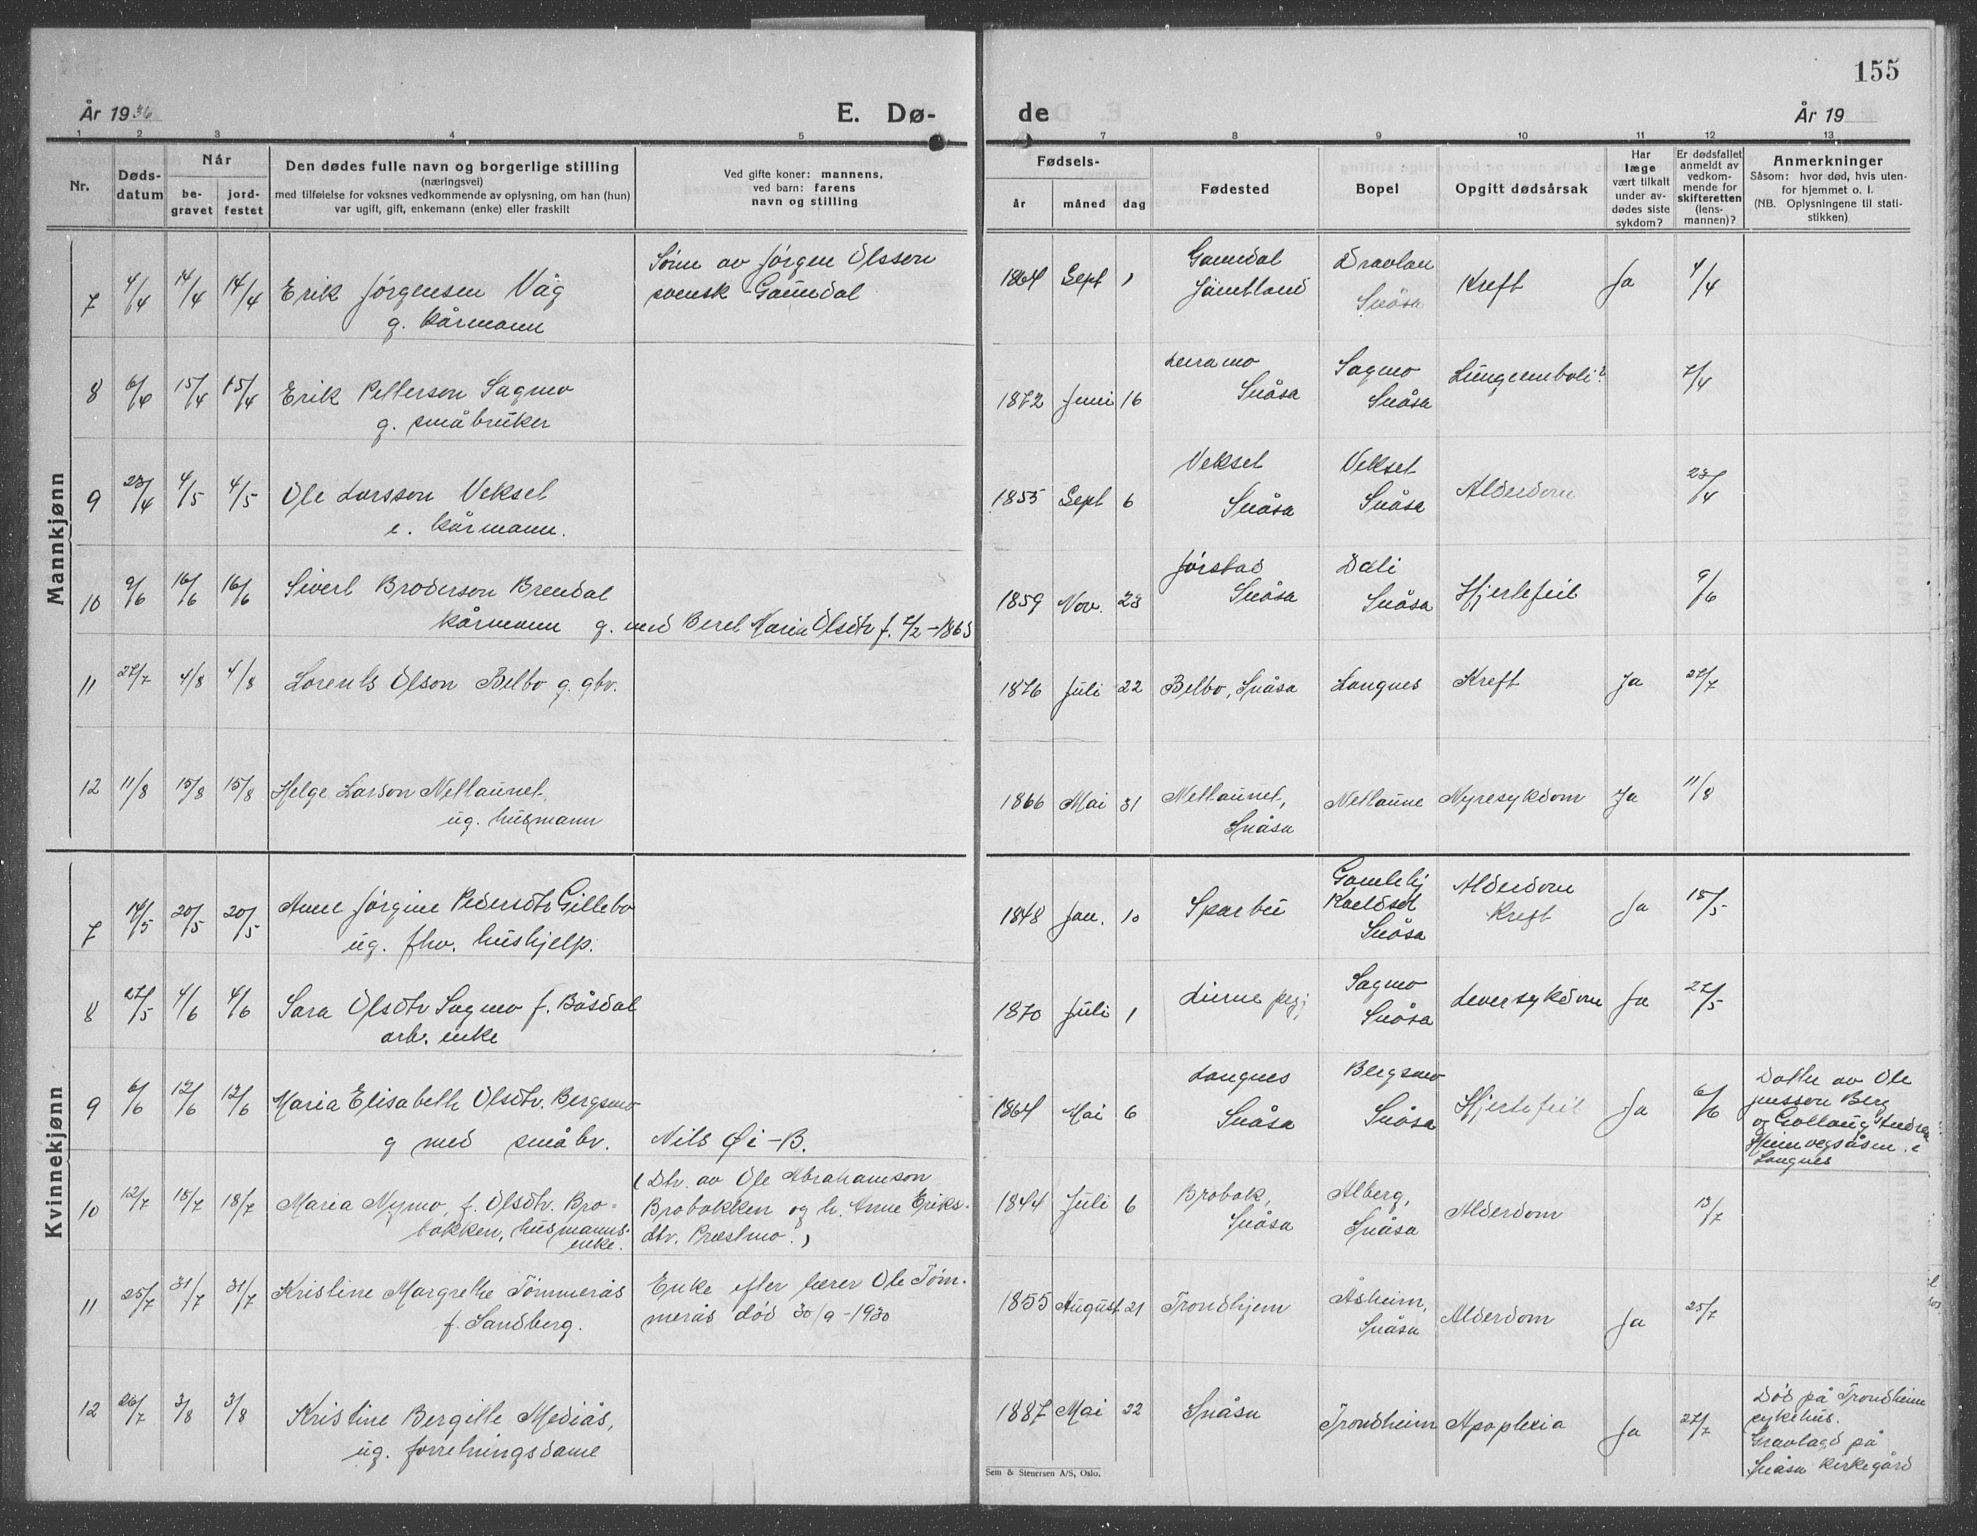 155
År 1936
E. Dø-
de
År 19
1 2 3 4 5 7 8 9 10 11 12 13
Nr.
Døds-
datum
Når
be-
gravet
jord-
festet
Den dødes fulle navn og borgerlige stilling
(næringsvei)
med tilføielse for voksnes vedkommende av oplysning, om han (hun)
var ugift, gift, enkemann (enke) eller fraskilt
Ved gifte koner: mannens,
ved barn: farens
navn og stilling
Fødsels-
år måned dag
Fødested
Bopel
Opgitt dødsårsak
Har
læge
vært tilkalt
under av-
dødes siste
sykdom?
Er dødsfallet
anmeldt av
vedkom-
mende for
skifteretten
(lens-
mannen)?
Anmerkninger
Såsom: hvor død, hvis uten-
for hjemmet o. l.
(NB. Oplysningene til stati-
stikken)
Mannkjønn
7 4/4 14/4 14/4 Erik Jørgensen Våg
g. kårmann
Sønn av Jørgen Olsson
svensk-Gaundal
1864 Sept 1
Gaundal
Jämtland
Dravlan
Snåsa
Kreft Ja 4/4
8 6/4 15/4 15/4 Erik Petterson Sagmo
g. småbruker
1872 Juni 16
Luramo
Snåsa
Sagmo
Snåsa
Lungeemboli? 7/4
9 23/4 4/5 4/5 Ole Larsson Veksel
e. kårmann.
1855 Sept 6
Veksel
Snåsa
Vekset
Snåsa
Alderdom 23/4
10 9/6 16/6 16/6 Sivert Broderson Brendal
kårmann g. med Beret Maria Olsdtr f. 7/2-1863
1859 Nov. 23
Jørstad
Snåsa
Dali
Snåsa
Hjertefeil 9/6
11 27/7 4/8 4/8 Lorents Olson Belbo g. gbr.
1876 Juli 22 Belbo, Snåsa Langnes Kreft Ja 27/7
12 11/8 15/8 15/8 Helge Larson Netlaunet.
ug. husmann
1866 Mai 31
Netlaunet,
Snåsa
Netlaune Nyresykdom Ja 11/8
Kvinnekjønn
7 14/5 20/5 20/5 Anne Jørgine Pedersdtr Gillebo
ug. fhv. hushjelp.
1848 Jan. 10 Sparbu
Gamlehj
Snåsa
Alderdom
Kreft
Ja 15/5
8 27/5 4/6 4/6 Sara Olsdtr Sagmo f. Båsdal
arb. enke
1870 Juli 1 Lierne pgj,
Sagmo
Snåsa
Leversykdom Ja 27/5
9 6/6 12/6 12/6 Maria Elisabeth Olsdtr. Bergsmo
g med småbr. Nils Øi-B.
1864 Mai 6
Langnes
Snåsa
Bergsmo
Snåsa
Hjertefeil Ja 6/6
Datter av Ole
Jensson Berg
og Gollaug Andrea
Heimvegsåsen. i
Langnes
10 12/7 18/7 18/7 Maria Nymo, f. Olsdtr. Bro-
bakken, husmanns-
enke.
(Dtr. av Ole Abrahamson
Brobakken og h. Anne Eriks-
dtr. Præstmo.)
1844 Juli 6
Brobak,
Snåsa
Alberg,
Snåsa
Alderdom 13/7
11 25/7 31/7 31/7 Kristine Margrethe Tømmerås
f. Sandberg.
Enke efter lærer Ole Tøm-
merås død 30/9-1930
1855 August 21 Trondhjem
Åsheim,
Snåsa
Alderdom Ja 25/7
12 26/7 3/8 3/8 Kristine Bergitte Mediås,
ug. forretningsdame
1887 Mai 22 Snåsa Trondheim Apoplexia Ja 27/7
Død på Trondheim
sykehus.
Gravlagd på
Snåsa kirkegård
Sem & Stenersen A/S, Oslo.